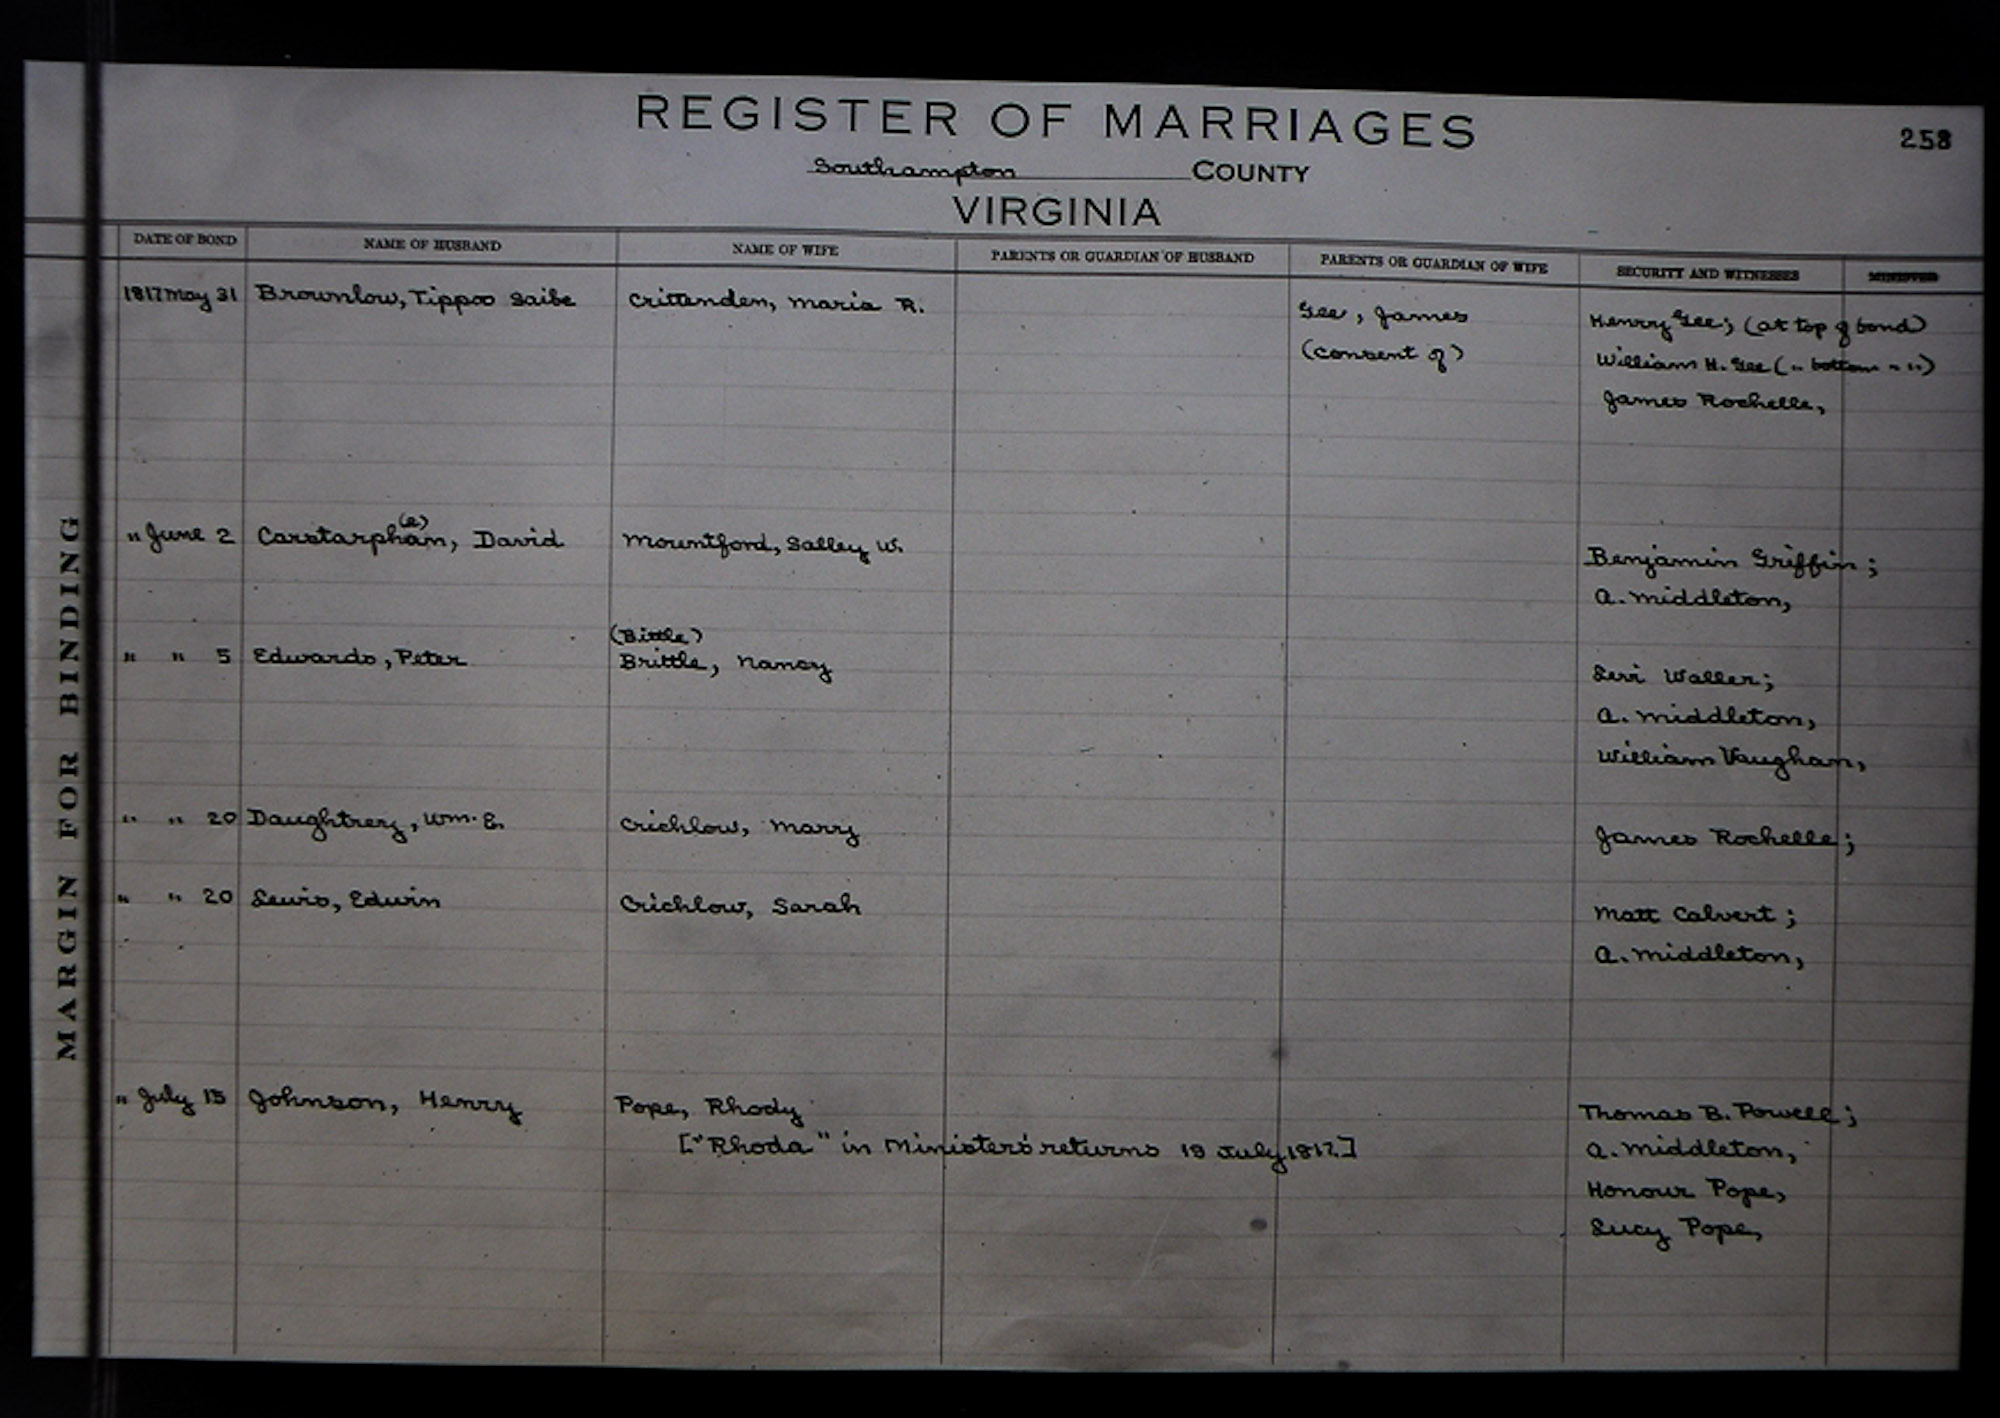 REGISTER OF MARRIAGES
258
Southampton COUNTY
VIRGINIA
DATE OF BOND NAME OF HUSBAND NAME OF WIFE PARENTS OR GUARDIAN OF HUSBAND PARENTS OR GUARDIAN OF WIFE SECURITY AND WITNESSES MINISTER
1817 May 31 Brownlow, Tippoo Saibe Crittenden, Maria R. Gee, James Henry Gee; (at top of bond)
(consent of) William H. Gee (" bottom " ")
James Rochelle,
" June 2 Carstarphan, David Mountford, Salley W. Benjamin Griffin;
(e)
A. Middleton,
(Bittle)
" " 5 Edwards, Peter Brittle, Nancy Levi Waller;
A. Middleton,
William Vaughan,
" " 20 Daughtrey, Wm. E. Crichlow, Mary James Rochelle;
" " 20 Lewis, Edwin Crichlow, Sarah Matt Calvert;
A. Middleton,
" July 15 Johnson, Henry Pope, Rhody Thomas B. Powell;
["Rhoda" in Ministers' returns 19 July 1817.] A. Middleton,
Honour Pope,
Lucy Pope,
MARGIN FOR BINDING